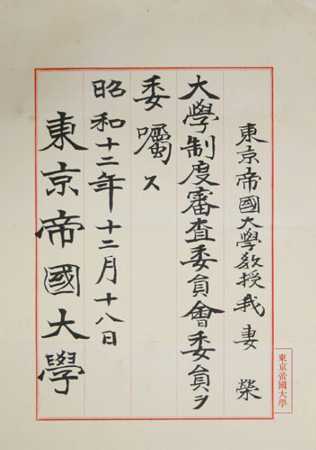 東京帝國大學教授我妻榮
大學制度審査委員會委員ヲ
委囑ス
昭和十二年十二月十八日
東京帝國大學
東京帝國大學